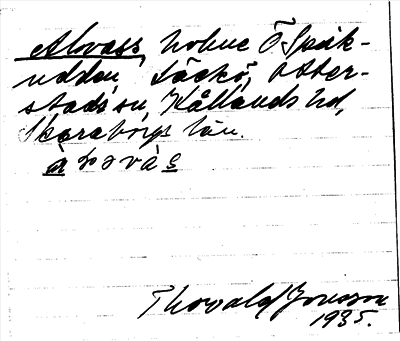 Alvass, holme Ö Spik-
udden, Läckö, Otter-
stads sn, Kållands hd,
Skaraborgs län.
Thorvald Jonsson
1935.